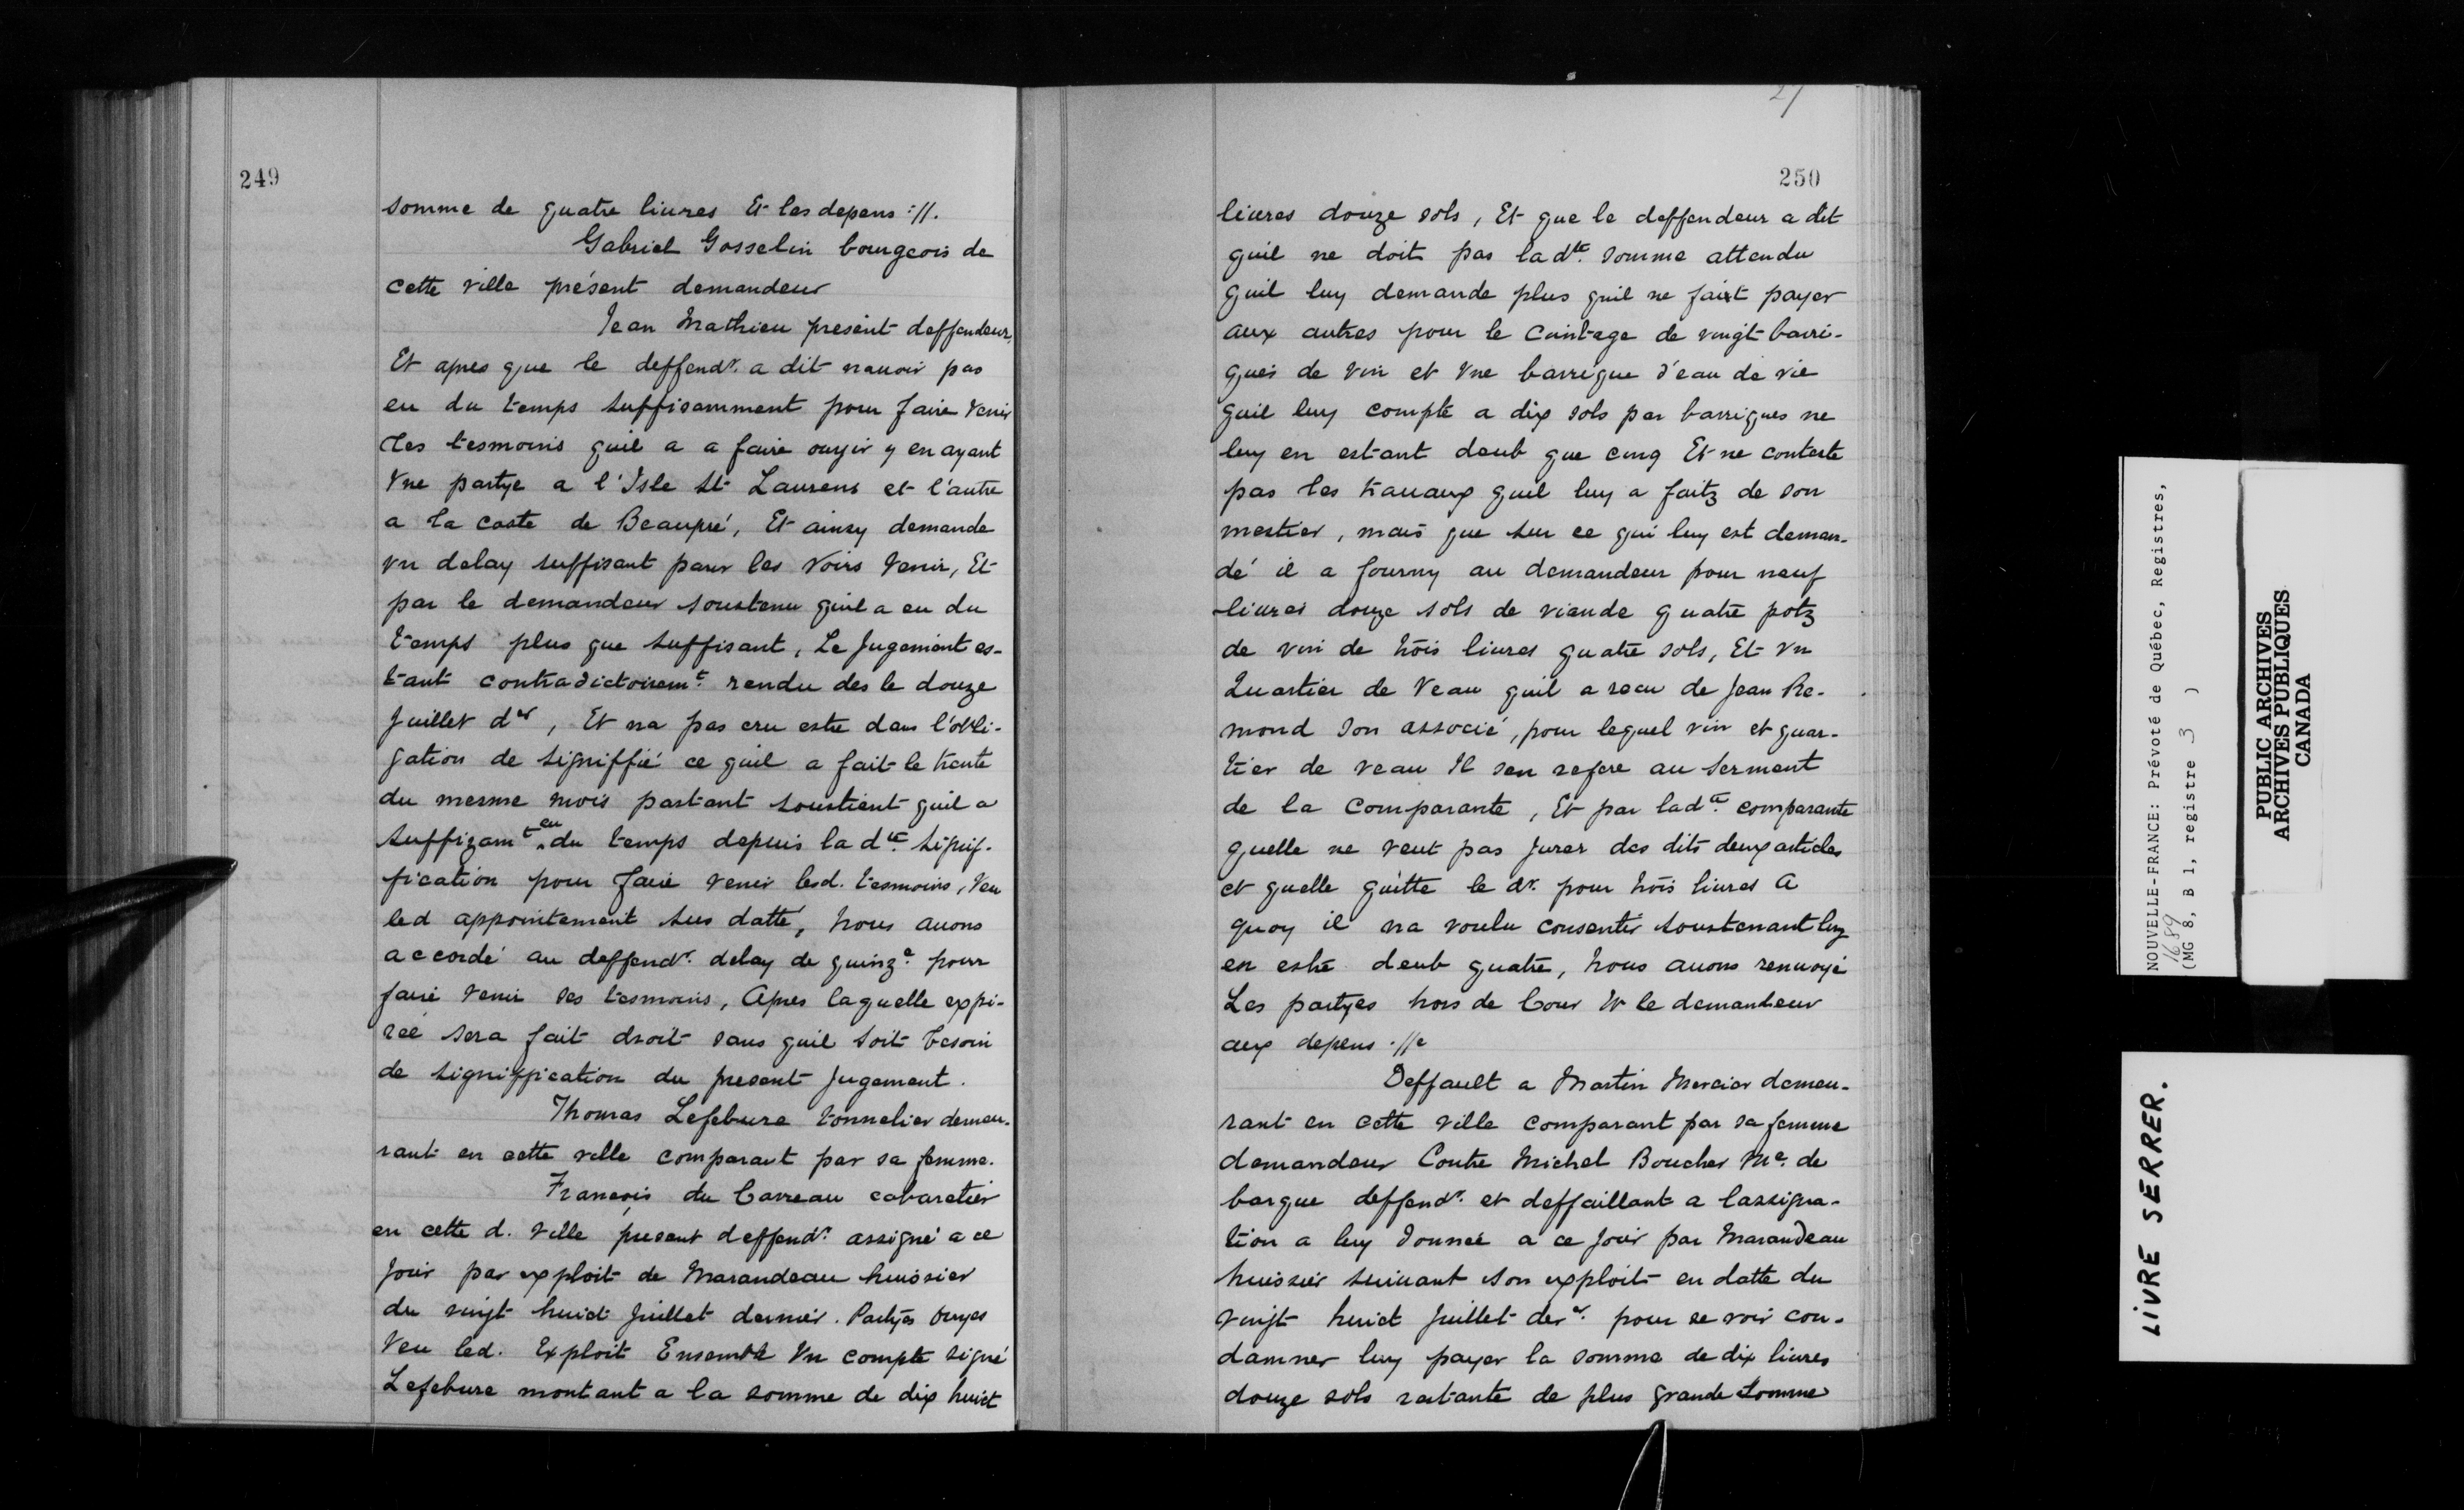 249
somme de quatre liures Et les depens ://.
Gabriel Gosselin bourgeois de
cette ville présent demandeur
Jean Mathieu present deffendeur,
Et apres que le deffendr. a dit nauoir pas
eu du temps suffisamment pour faire venir
des tesmoins quil a a faire ouyir y en ayant
Vne partye a l'Isle St Laurens et l'autre
a la coste de Beaupré, Et ainsy demande
vn delay suffisant pour les voirs Venir, Et
par le demandeur soustenu quil a eu du
temps plus que suffisant, Le Jugement es-
tant contradictoiremt. rendu des le douze
Juillet der, Et na pas cru estre dans l'obli-
gation de signiffié ce quil a fait le trente
du mesme mois partant soustient quil a
suffizamt eu du temps depuis la dte. signif-
fication pour faire venir lesd. tesmoins, Veu
led appointement sus datté, nous auons
accordé au deffendr. delay de quinze. pour
faire venir ses tesmoins, Apres laquelle expi-
reé sera fait droit sans quil soit besoin
de signiffication du present Jugement.
Thomas Lefebure tonnelier demeu-
rant en cette ville comparant par sa femme.
François du Carreau cabaretier
en cette d. Ville present deffendr. assigné a ce
Jour par exploit de Marandeau huissier
du vingt huict Juillet dernier. Partyes Ouyes
Veu led. Exploit Ensemble Vn compte signé
Lefebure montant a la somme de dix huict
27
250
liures douze sols, Et que le deffendeur a dit
quil ne doit pas la dte. somme attendu
quil luy demande plus quil ne faist payer
aux autres pour le Cuintage de vingt barri-
ques de vin et Vne barrique d'eau de vie
quil luy compte a dix sols par barriques ne
luy en estant deub que cinq Et ne conteste
pas les trauaux quil luy a faitz de son
mestier, mais que sur ce qui luy est deman-
dé il a fourny au demandeur pour neuf
liures douze sols de viande quatre potz
de vin de trois liures quatre sols, Et Vn
Quartier de Veau quil a receu de Jean Re-
mond son associé, pour lequel vin et quar-
tier de veau Il sen refere au serment
de la comparante, Et par ladte. comparante
quelle ne veut pas Jurer des dits deux articles
et quelle quitte le dr. pour trois liures A
quoy il na voulu consentir soustenant luy
en estre deub quatre, nous auons renuoyé
Les partyes hors de Cour Et le demandeur
aux depens .//.
Deffault a Martin Mercier demeu-
rant en cette ville comparant par sa femme
demandeur Contre Michel Boucher Me. de
barque deffendr. et deffaillant a lassigna-
tion a luy donneé a ce Jour par Marandeau
huissier suiuant son exploit en datte du
vingt huict Juillet der. pour se voir con-
damner luy payer la somme de dix liures
douze sols restante de plus grande somme
NOUVELLE-FRANCE: Prévoté de Québec, Registres,
1689
(MG 8, B 1, registre 3 )
PUBLIC ARCHIVES
ARCHIVES PUBLIQUES
CANADA
LIVRE SERRER.